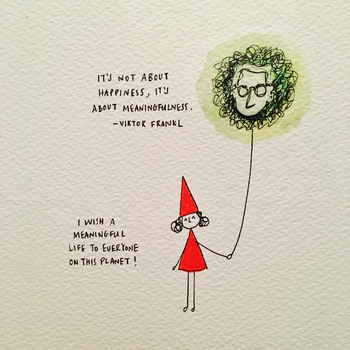 IT'S NOT ABOUT
HAPPINESS, IT'S
ABOUT MEANINGFULNESS.
- VIKTOR FRANKL
I WISH A
MEANINGFUL
LIFE TO EVERYONE
ON THIS PLANET!